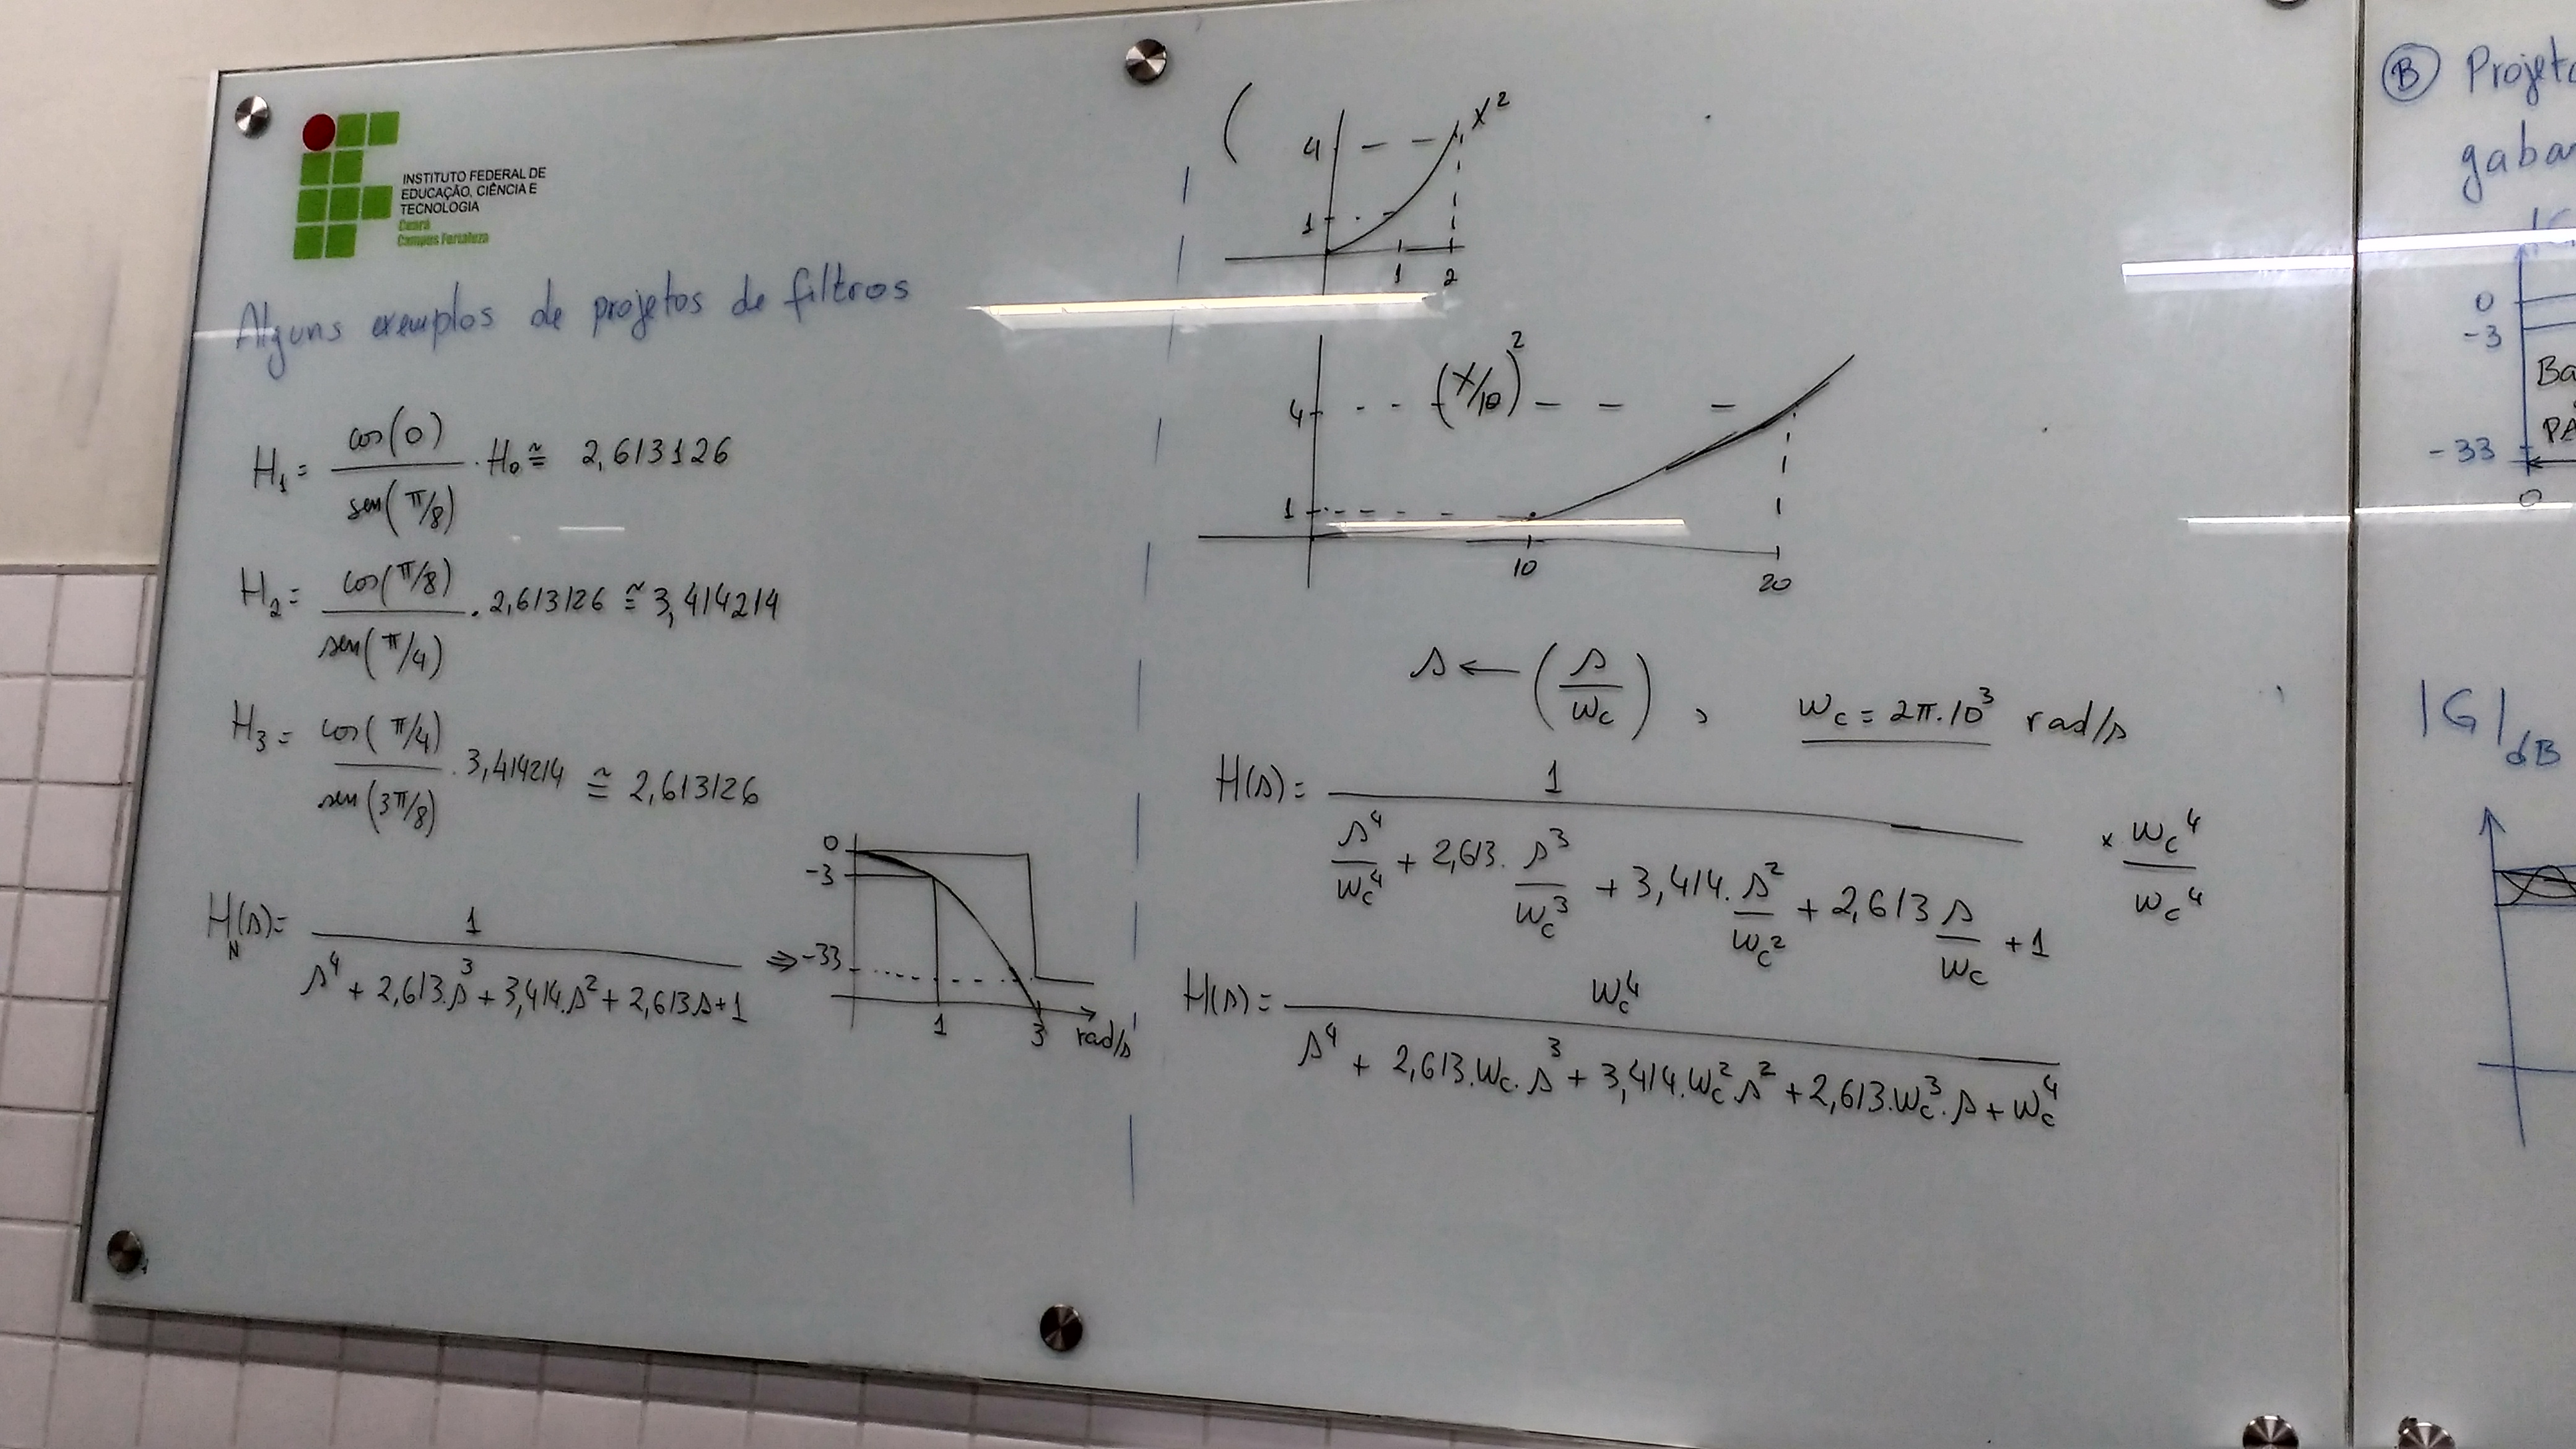 INSTITUTO FEDERAL DE
EDUCAÇÃO, CIÊNCIA E
TECNOLOGIA
Ceará
Campus Fortaleza
Alguns exemplos de projetos de filtros
H₁ = cos(0) / sen(π/8) · H₀ ≅ 2,613126
H₂ = cos(π/8) / sen(π/4) . 2,613126 ≅ 3,414214
H₃ = cos(π/4) / sen(3π/8) . 3,414214 ≅ 2,613126
H_N(s) = 1 / s⁴ + 2,613.s³ + 3,414.s² + 2,613s + 1 ⇒
0
-3
-33
1 3 rad/s
( 4 x²
1
1 2
(x/10)²
4
1
10 20
s ← (s/ω_c) , ω_c = 2π.10³ rad/s
H(s) = 1 / s⁴/ω_c⁴ + 2,613. s³/ω_c³ + 3,414. s²/ω_c² + 2,613 s/ω_c + 1 × ω_c⁴/ω_c⁴
H(s) = ω_c⁴ / s⁴ + 2,613.ω_c.s³ + 3,414.ω_c²s² + 2,613.ω_c³.s + ω_c⁴
Ⓑ
0
-3
-33
0
|G|dB